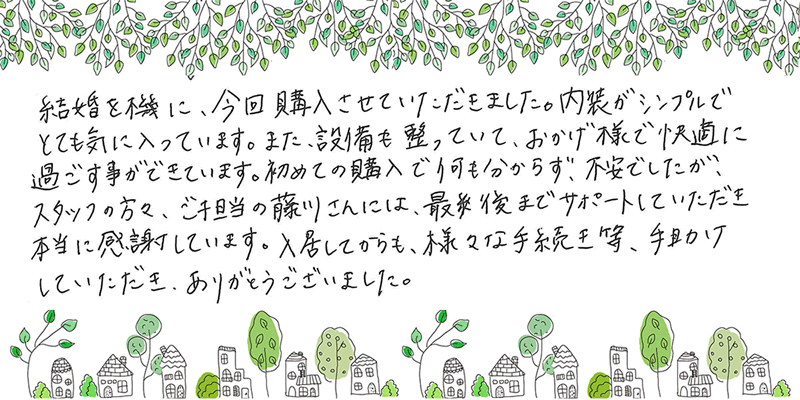 結婚を機に、今回購入させていただきました。内装がシンプルで
とても気に入っています。また、設備も整っていて、おかげ様で快適に
過ごす事ができています。初めての購入で何も分からず、不安でしたが、
スタッフの方々、ご担当の藤川さんには、最後までサポートしていただき
本当に感謝しています。入居してからも、様々な手続き等、手助け
していただき、ありがとうございました。